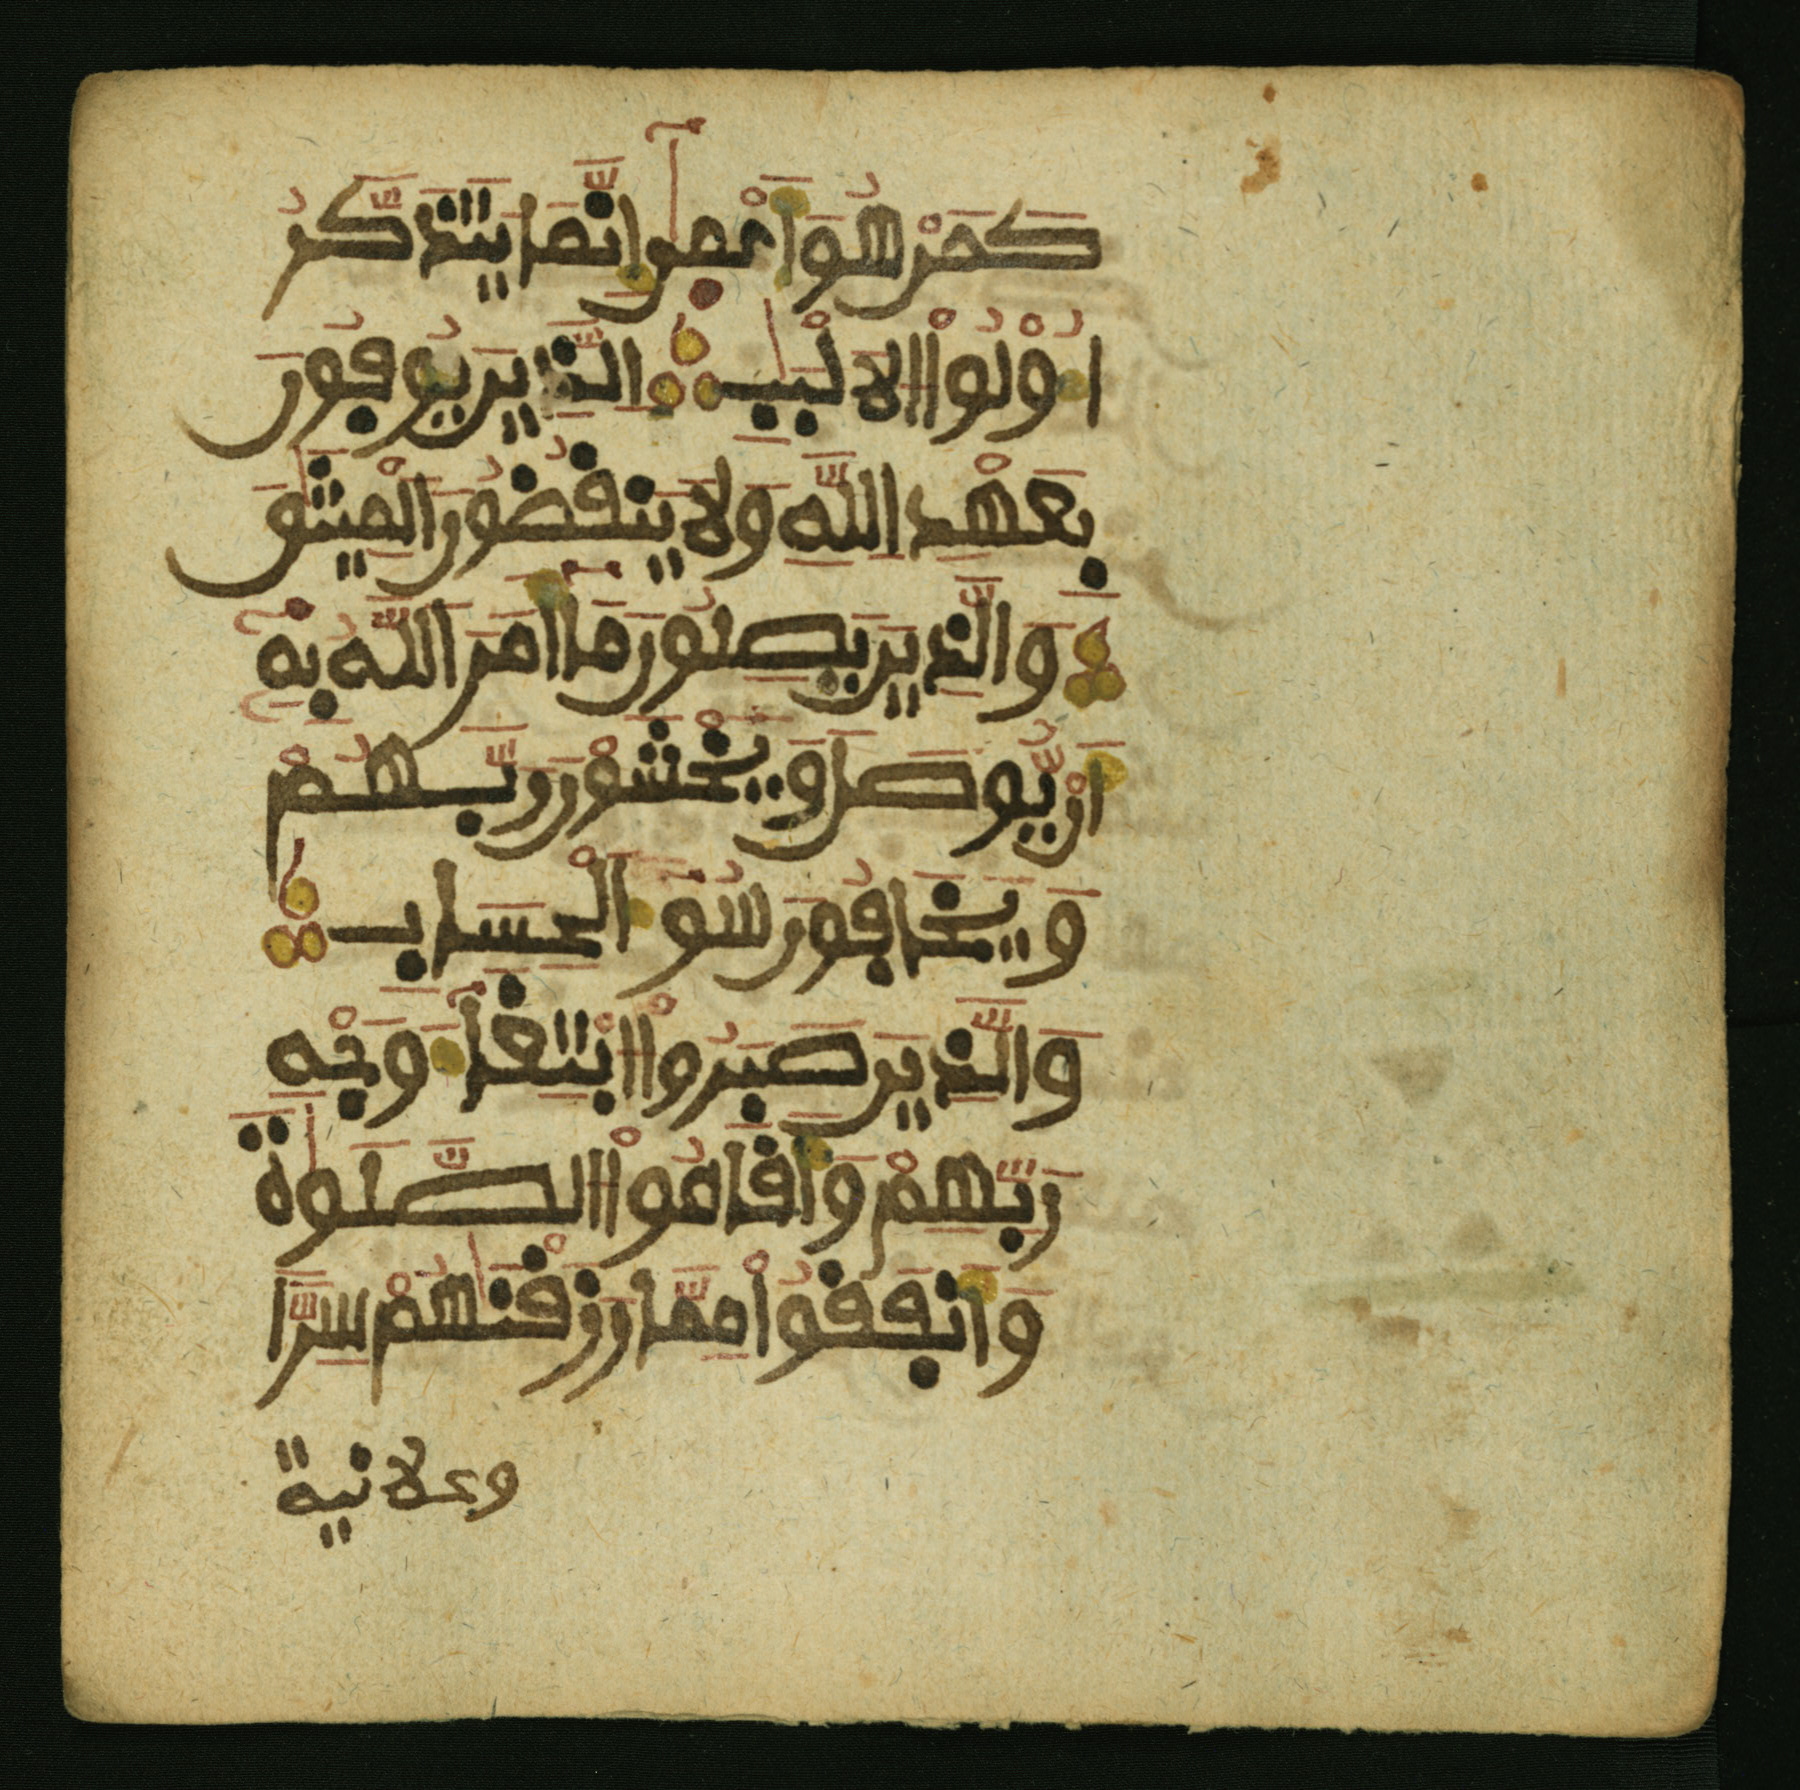 كَمَنْ هُوَ أَعْمٰىٓ إِنَّمَا يَتَذَكَّرُ
أُوْلُواْ الْأَلْبَٰبِ الَّذِينَ يُوفُونَ
بِعَهْدِ اللَّهِ وَلَا يَنقُضُونَ الْمِيثَٰقَ
وَالَّذِينَ يَصِلُونَ مَا أَمَرَ اللَّهُ بِهِ
أَنْ يُّوصَلَ وَيَخْشَوْنَ رَبَّهُمْ
وَيَخَافُونَ سُوءَ الْحِسَابِ
وَالَّذِينَ صَبَرُواْ ابْتِغَآءَ وَجْهِ
رَبِّهِمْ وَأَقَامُواْ الصَّلَوٰةَ
وَأَنفَقُواْ مِمَّا رَزَقْنَٰهُمْ سِرّاً
وعلانية